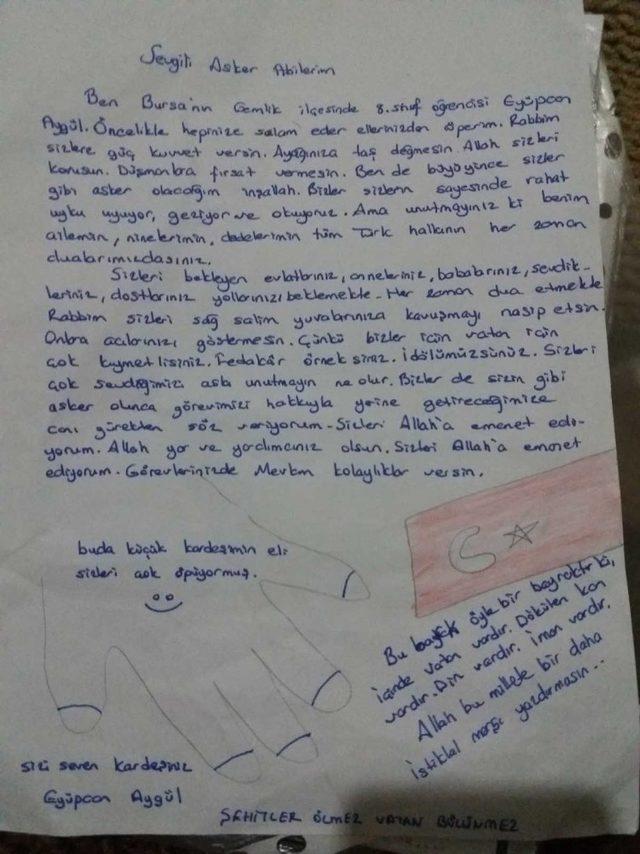 Sevgili Asker Abilerim
Ben Bursa'nın Gemlik ilçesinde 8.sınıf öğrencisi Eyüpcan
Aygül. Öncelikle hepinize selam eder ellerinizden öperim. Rabbim
sizlere güç kuvvet versin. Ayağınıza taş değmesin. Allah sizleri
korusun. Düşmanlara fırsat vermesin. Ben de büyüyünce sizler
gibi asker olacağım inşallah. Bizler sizlerin sayesinde rahat
uyku uyuyor, geziyor ve okuyoruz. Ama unutmayınız ki benim
ailemin, ninelerimin, dedelerimin tüm Türk halkının her zaman
dualarımızdasınız.
Sizleri bekleyen evlatlarınız, anneleriniz, babalarınız, sevdik-
leriniz, dostlarınız yollarınızı beklemekte. Her zaman dua etmekte
Rabbim sizleri sağ salim yuvalarınıza kavuşmayı nasip etsin.
Onlara acılarınızı göstermesin. Çünkü bizler için vatan için
çok kıymetlisiniz. Fedakâr örneksiniz. İdölümüzsünüz. Sizleri
çok sevdiğimizi asla unutmayın ne olur. Bizler de sizin gibi
asker olunca görevimizi hakkıyla yerine getireceğimize
canı gürekten söz veriyorum. Sizleri Allah'a emanet edi-
yorum. Allah yar ve yardımcınız olsun. Sizleri Allah'a emanet
ediyorum. Görevlerinizde Mevlam kolaylıklar versin.
buda küçük kardeşimin eli
sizleri çok öpüyormuş.
Bu bayrak öyle bir bayraktır ki,
içinde vatan vardır. Dökülen kan
vardır. Din vardır. İman vardır.
Allah bu millete bir daha
İstiklal marşı yazdırmasın...
sizi seven kardeşiniz
Eyüpcan Aygül
ŞEHİTLER ÖLMEZ VATAN BÖLÜNMEZ